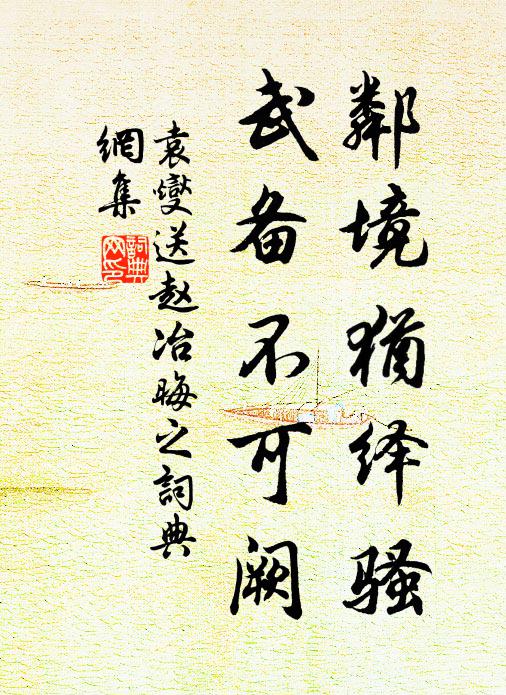 鄰境猶绎骚
武备不可阙
袁燮送赵冶晦之詞典
網集
詞典
网印